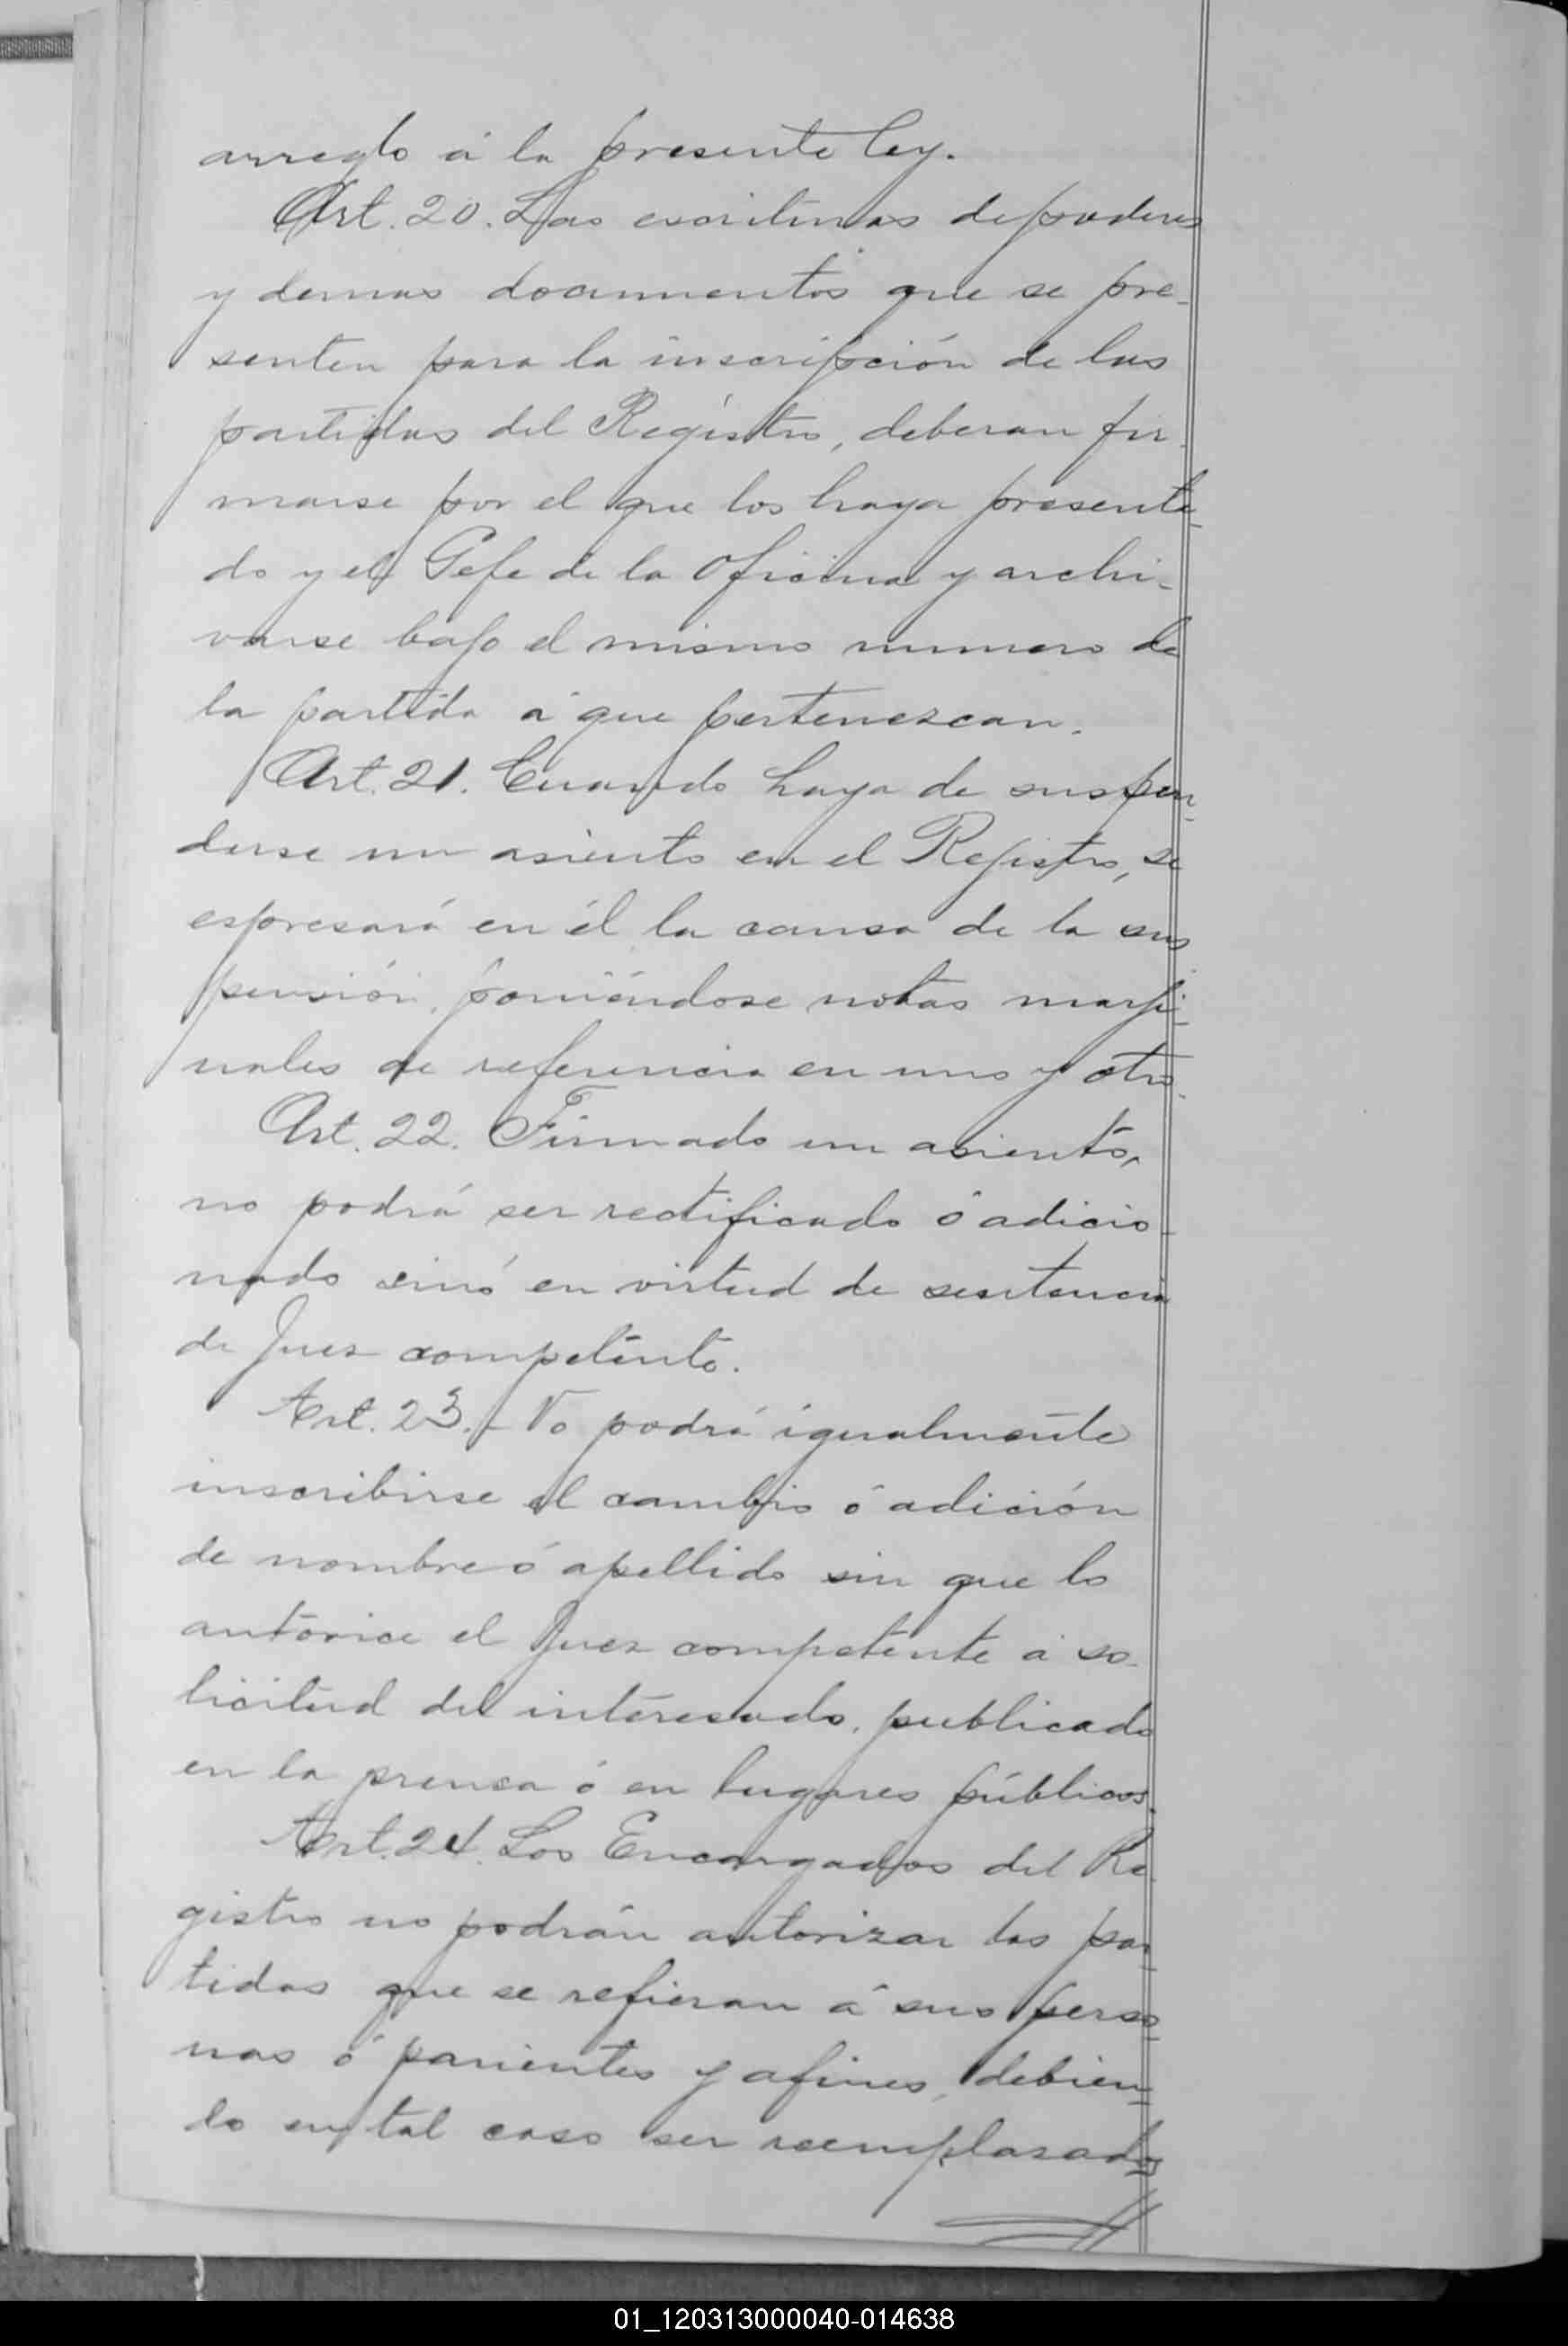 arreglo á la presente ley.
Art. 20. Las escrituras de poderes
y demas documentos que se pre-
senten para la inscripción de las
partidas del Registro, deberan fir-
marse por el que los haya presenta-
do y el Gefe de la Oficina y archi-
varse bajo el mismo numero de
la partida á que pertenezcan.
Art. 21. Cuando haya de suspen-
derse un asiento en el Registro, se
espresará en él la causa de la sus
pensión, poniéndose notas margi-
nales de referencia en uno y otro.
Art. 22. Firmado un asiento,
no podrá ser rectificado ó adicio-
nado sinó en virtud de sentencia
de Juez competente.
Art. 23. - No podrá igualmente
inscribirse el cambio ó adición
de nombre ó apellido sin que lo
autorice el Juez competente á so-
licitud del interesado, publicado
en la prensa ó en lugares públicos.
Art. 24. Los Encargados del Re
gistro no podrán autorizar las par-
tidas que se refieran á sus perso-
nas ó parientes y afines, debien-
do en tal caso ser reemplasados
01_120313000040-014638